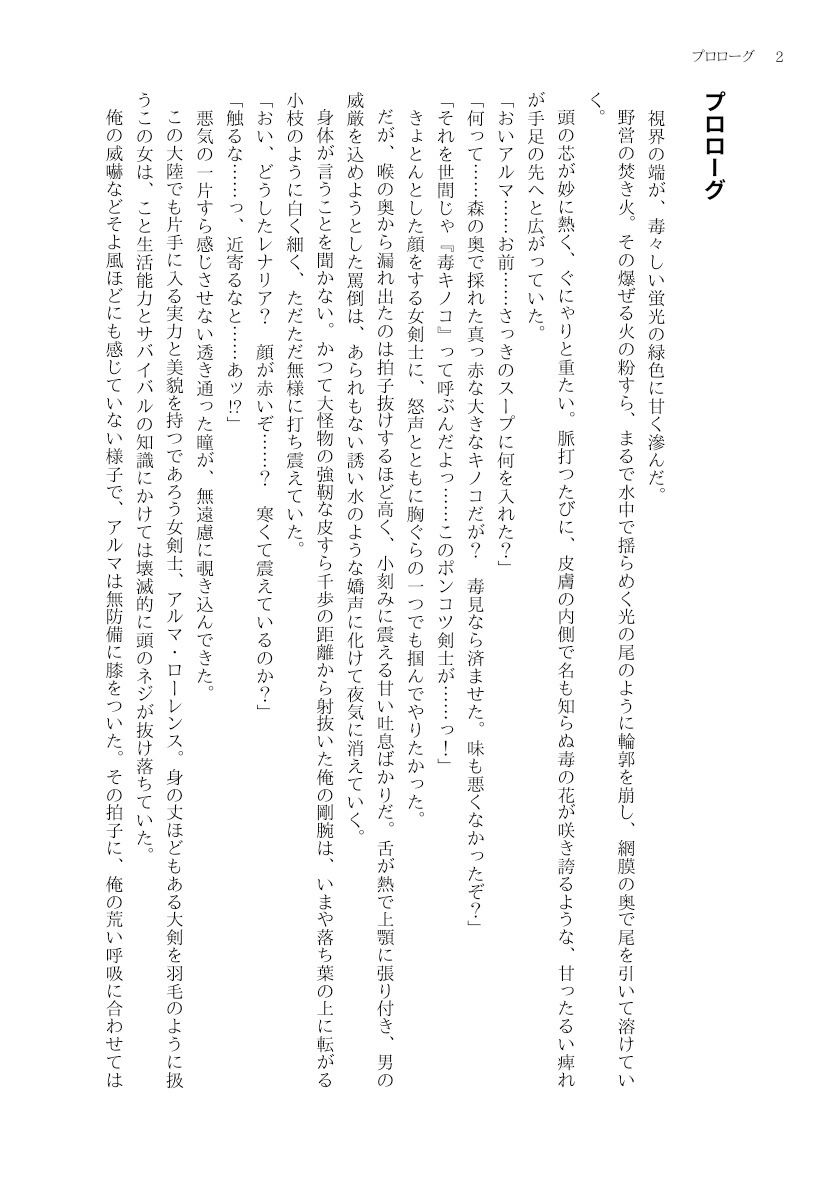 プロローグ　2
プロローグ
　視界の端が、毒々しい蛍光の緑色に甘く滲んだ。
　野営の焚き火。その爆ぜる火の粉すら、まるで水中で揺らめく光の尾のように輪郭を崩し、網膜の奥で尾を引いて溶けてい
く。
　頭の芯が妙に熱く、ぐにゃりと重たい。脈打つたびに、皮膚の内側で名も知らぬ毒の花が咲き誇るような、甘ったるい痺れ
が手足の先へと広がっていた。
「おいアルマ……お前……さっきのスープに何を入れた？」
「何って……森の奥で採れた真っ赤な大きなキノコだが？　毒見なら済ませた。味も悪くなかったぞ？」
「それを世間じゃ『毒キノコ』って呼ぶんだよっ……このポンコツ剣士が……っ！」
　きょとんとした顔をする女剣士に、怒声とともに胸ぐらの一つでも掴んでやりたかった。
　だが、喉の奥から漏れ出たのは拍子抜けするほど高く、小刻みに震える甘い吐息ばかりだ。舌が熱で上顎に張り付き、男の
威厳を込めようとした罵倒は、あられもない誘い水のような嬌声に化けて夜気に消えていく。
　身体が言うことを聞かない。かつて大怪物の強靭な皮すら千歩の距離から射抜いた俺の剛腕は、いまや落ち葉の上に転がる
小枝のように白く細く、ただただ無様に打ち震えていた。
「おい、どうしたレナリア？　顔が赤いぞ……？　寒くて震えているのか？」
「触るな……っ、近寄るなと……あッ!?」
　悪気の一片すら感じさせない透き通った瞳が、無遠慮に覗き込んできた。
　この大陸でも片手に入る実力と美貌を持つであろう女剣士、アルマ・ローレンス。身の丈ほどもある大剣を羽毛のように扱
うこの女は、こと生活能力とサバイバルの知識にかけては壊滅的に頭のネジが抜け落ちていた。
　俺の威嚇などそよ風ほどにも感じていない様子で、アルマは無防備に膝をついた。その拍子に、俺の荒い呼吸に合わせては